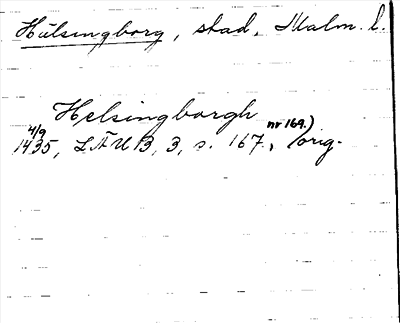 Hälsingborg, stad, Malm. l.
Helsingborgh
4/9 nr 169.)
1435, LÄUB, 3, s. 167., orig.